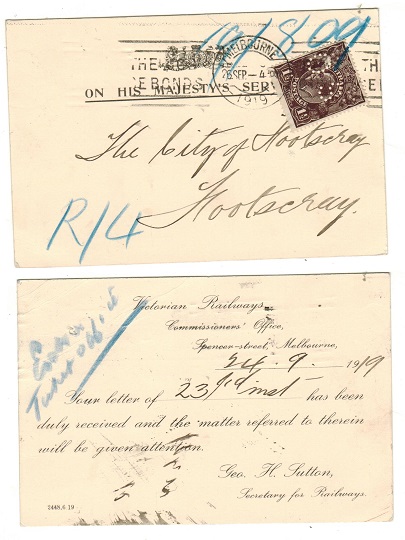 19/1809
MELBOURNE
SEP - 4
1919
THE
BONDS
ON HIS MAJESTY'S SER
The City of Footscray
Footscray.
R/4
Victorian Railways,
Commissioners' Office,
Spencer-street, Melbourne,
24. 9. 1919
Your letter of 23rd inst has been
duly received and the matter referred to therein
will be given attention.
Geo. H. Sutton,
Secretary for Railways.
2448,6.19